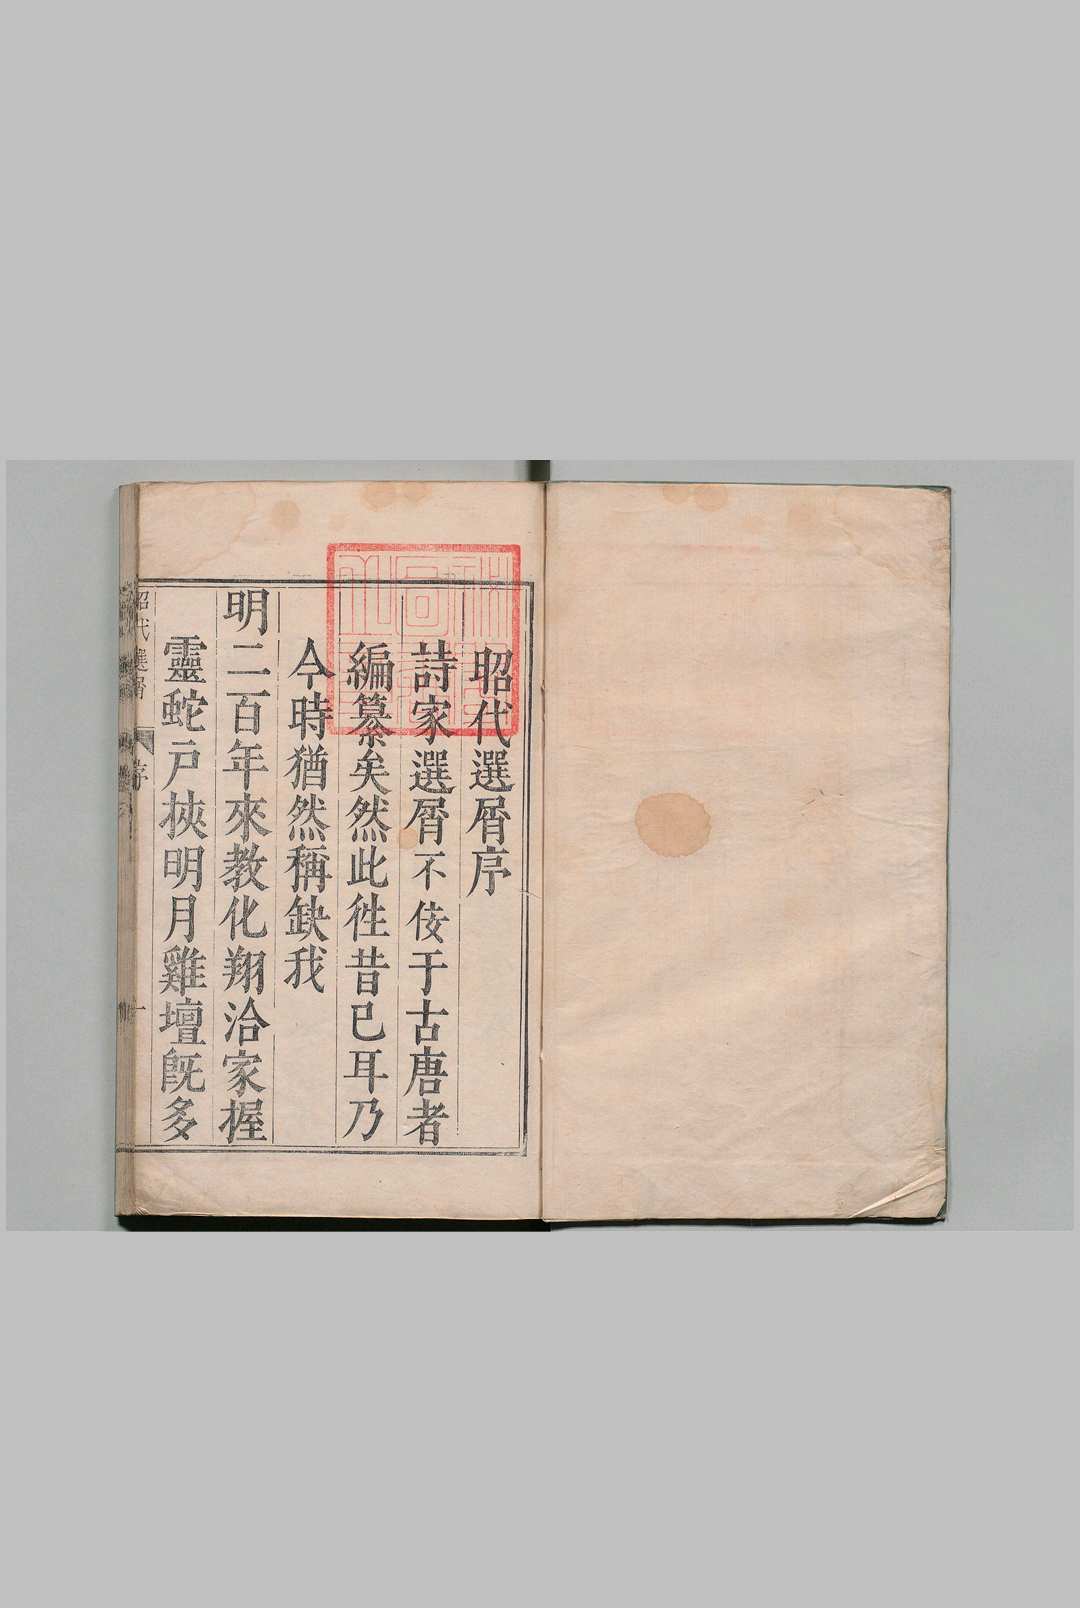 昭代選屑序
詩家選屑不佞于古唐者
編纂矣然此徃昔已耳乃
今時猶然稱缺我
明二百年來教化翔洽家握
靈蛇戸挾明月雞壇旣多
昭代選屑
序
一